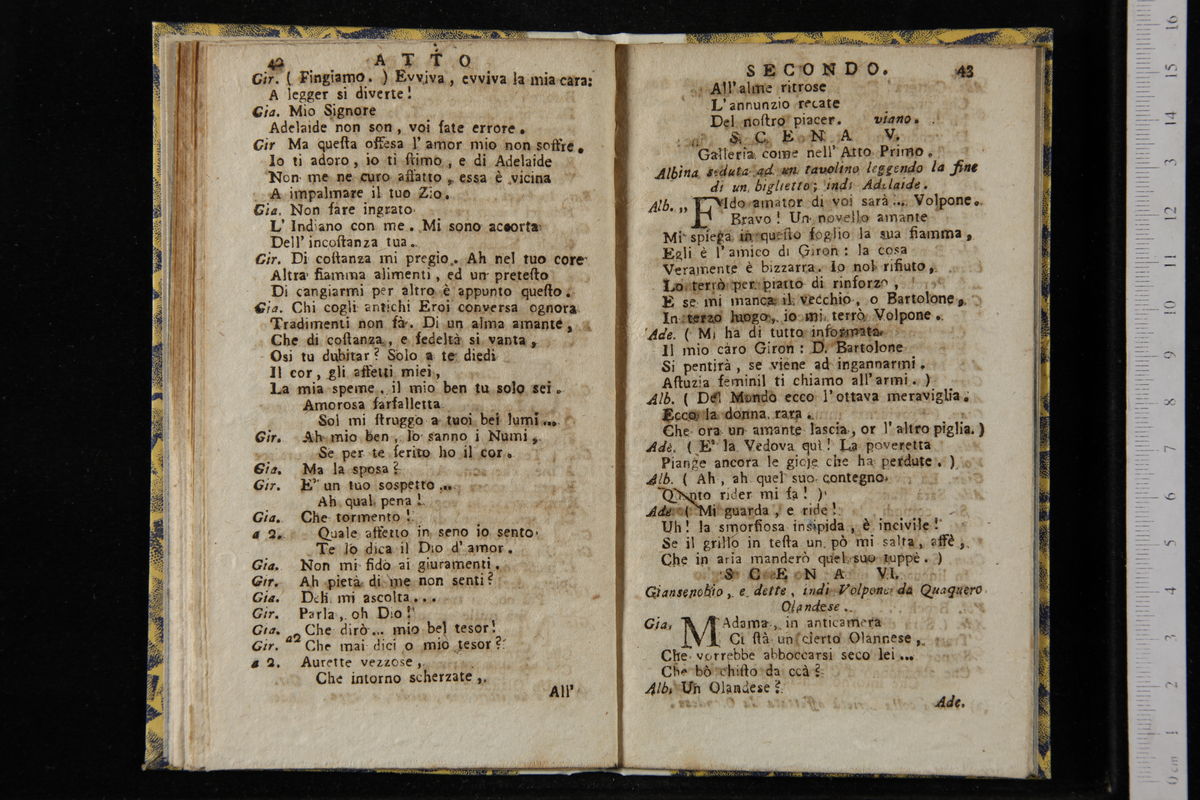 42 ATTO
Gir. ( Fingiamo. ) Evviva, evviva la mia cara;
A legger si diverte!
Gia. Mio Signore
Adelaide non son, voi fate errore.
Gir Ma questa offesa l'amor mio non soffre.
Io ti adoro, io ti stimo, e di Adelaide
Non me ne curo affatto, essa è vicina
A impalmare il tuo Zio.
Gia. Non fare ingrato
L'Indiano con me. Mi sono accorta
Dell'incostanza tua.
Gir. Di costanza mi pregio. Ah nel tuo core
Altra fiamma alimenti, ed un pretesto
Di cangiarmi per altro è appunto questo.
Gia. Chi cogli antichi Eroi conversa ognora
Tradimenti non fà. Di un alma amante,
Che di costanza, e fedeltà si vanta,
Osi tu dubitar? Solo a te diedi
Il cor, gli affetti miei,
La mia speme, il mio ben tu solo sei.
Amorosa farfalletta
Sol mi struggo a tuoi bei lumi...
Gir. Ah mio ben, lo sanno i Numi,
Se per te ferito ho il cor.
Gia. Ma la sposa?
Gir. E' un tuo sospetto...
Ah qual pena!
Gia. Che tormento!
a 2. Quale affetto in seno io sento
Te lo dica il Dio d'amor.
Gia. Non mi fido ai giuramenti.
Gir. Ah pietà di me non senti?
Gia. Deh mi ascolta...
Gir. Parla, oh Dio!
Gia. Che dirò... mio bel tesor!
Gir. a2 Che mai dici o mio tesor?
a 2. Aurette vezzose,
Che intorno scherzate,
All'
SECONDO. 43
All'alme ritrose
L'annunzio recate
Del nostro piacer. viano.
SCENA V.
Galleria come nell'Atto Primo.
Albina seduta ad un tavolino leggendo la fine
di un biglietto; indi Adelaide.
Alb. „ FIdo amator di voi sarà... Volpone.
Bravo! Un novello amante
Mi spiega in questo foglio la sua fiamma,
Egli è l'amico di Giron: la cosa
Veramente è bizzarra. Io nol rifiuto,
Lo terrò per piatto di rinforzo,
E se mi manca il vecchio, o Bartolone,
In terzo luogo, io mi terrò Volpone.
Ade. ( Mi ha di tutto informata
Il mio caro Giron: D. Bartolone
Si pentirà, se viene ad ingannarmi.
Astuzia feminil ti chiamo all'armi. )
Alb. ( Del Mondo ecco l'ottava meraviglia.
Ecco la donna rara.
Che ora un amante lascia, or l'altro piglia.)
Ade. ( E' la Vedova quì! La poveretta
Piange ancora le gioje che ha perdute. )
Alb. ( Ah, ah quel suo contegno
Quanto rider mi fa! )
Ade ( Mi guarda, e ride!
Uh! la smorfiosa insipida, è incivile!
Se il grillo in testa un pò mi salta, affè,
Che in aria manderò quel suo tuppè. )
SCENA VI.
Giansenobio, e dette, indi Volpone da Quaquero
Olandese.
Gia, MAdama, in anticamera
Ci stà un cierto Olannese,
Che vorrebbe abboccarsi seco lei...
Che bò chisto da ccà?
Alb. Un Olandese?
Ade.
16
15
14
13
12
11
10
9
8
7
6
5
4
3
2
1
0 cm